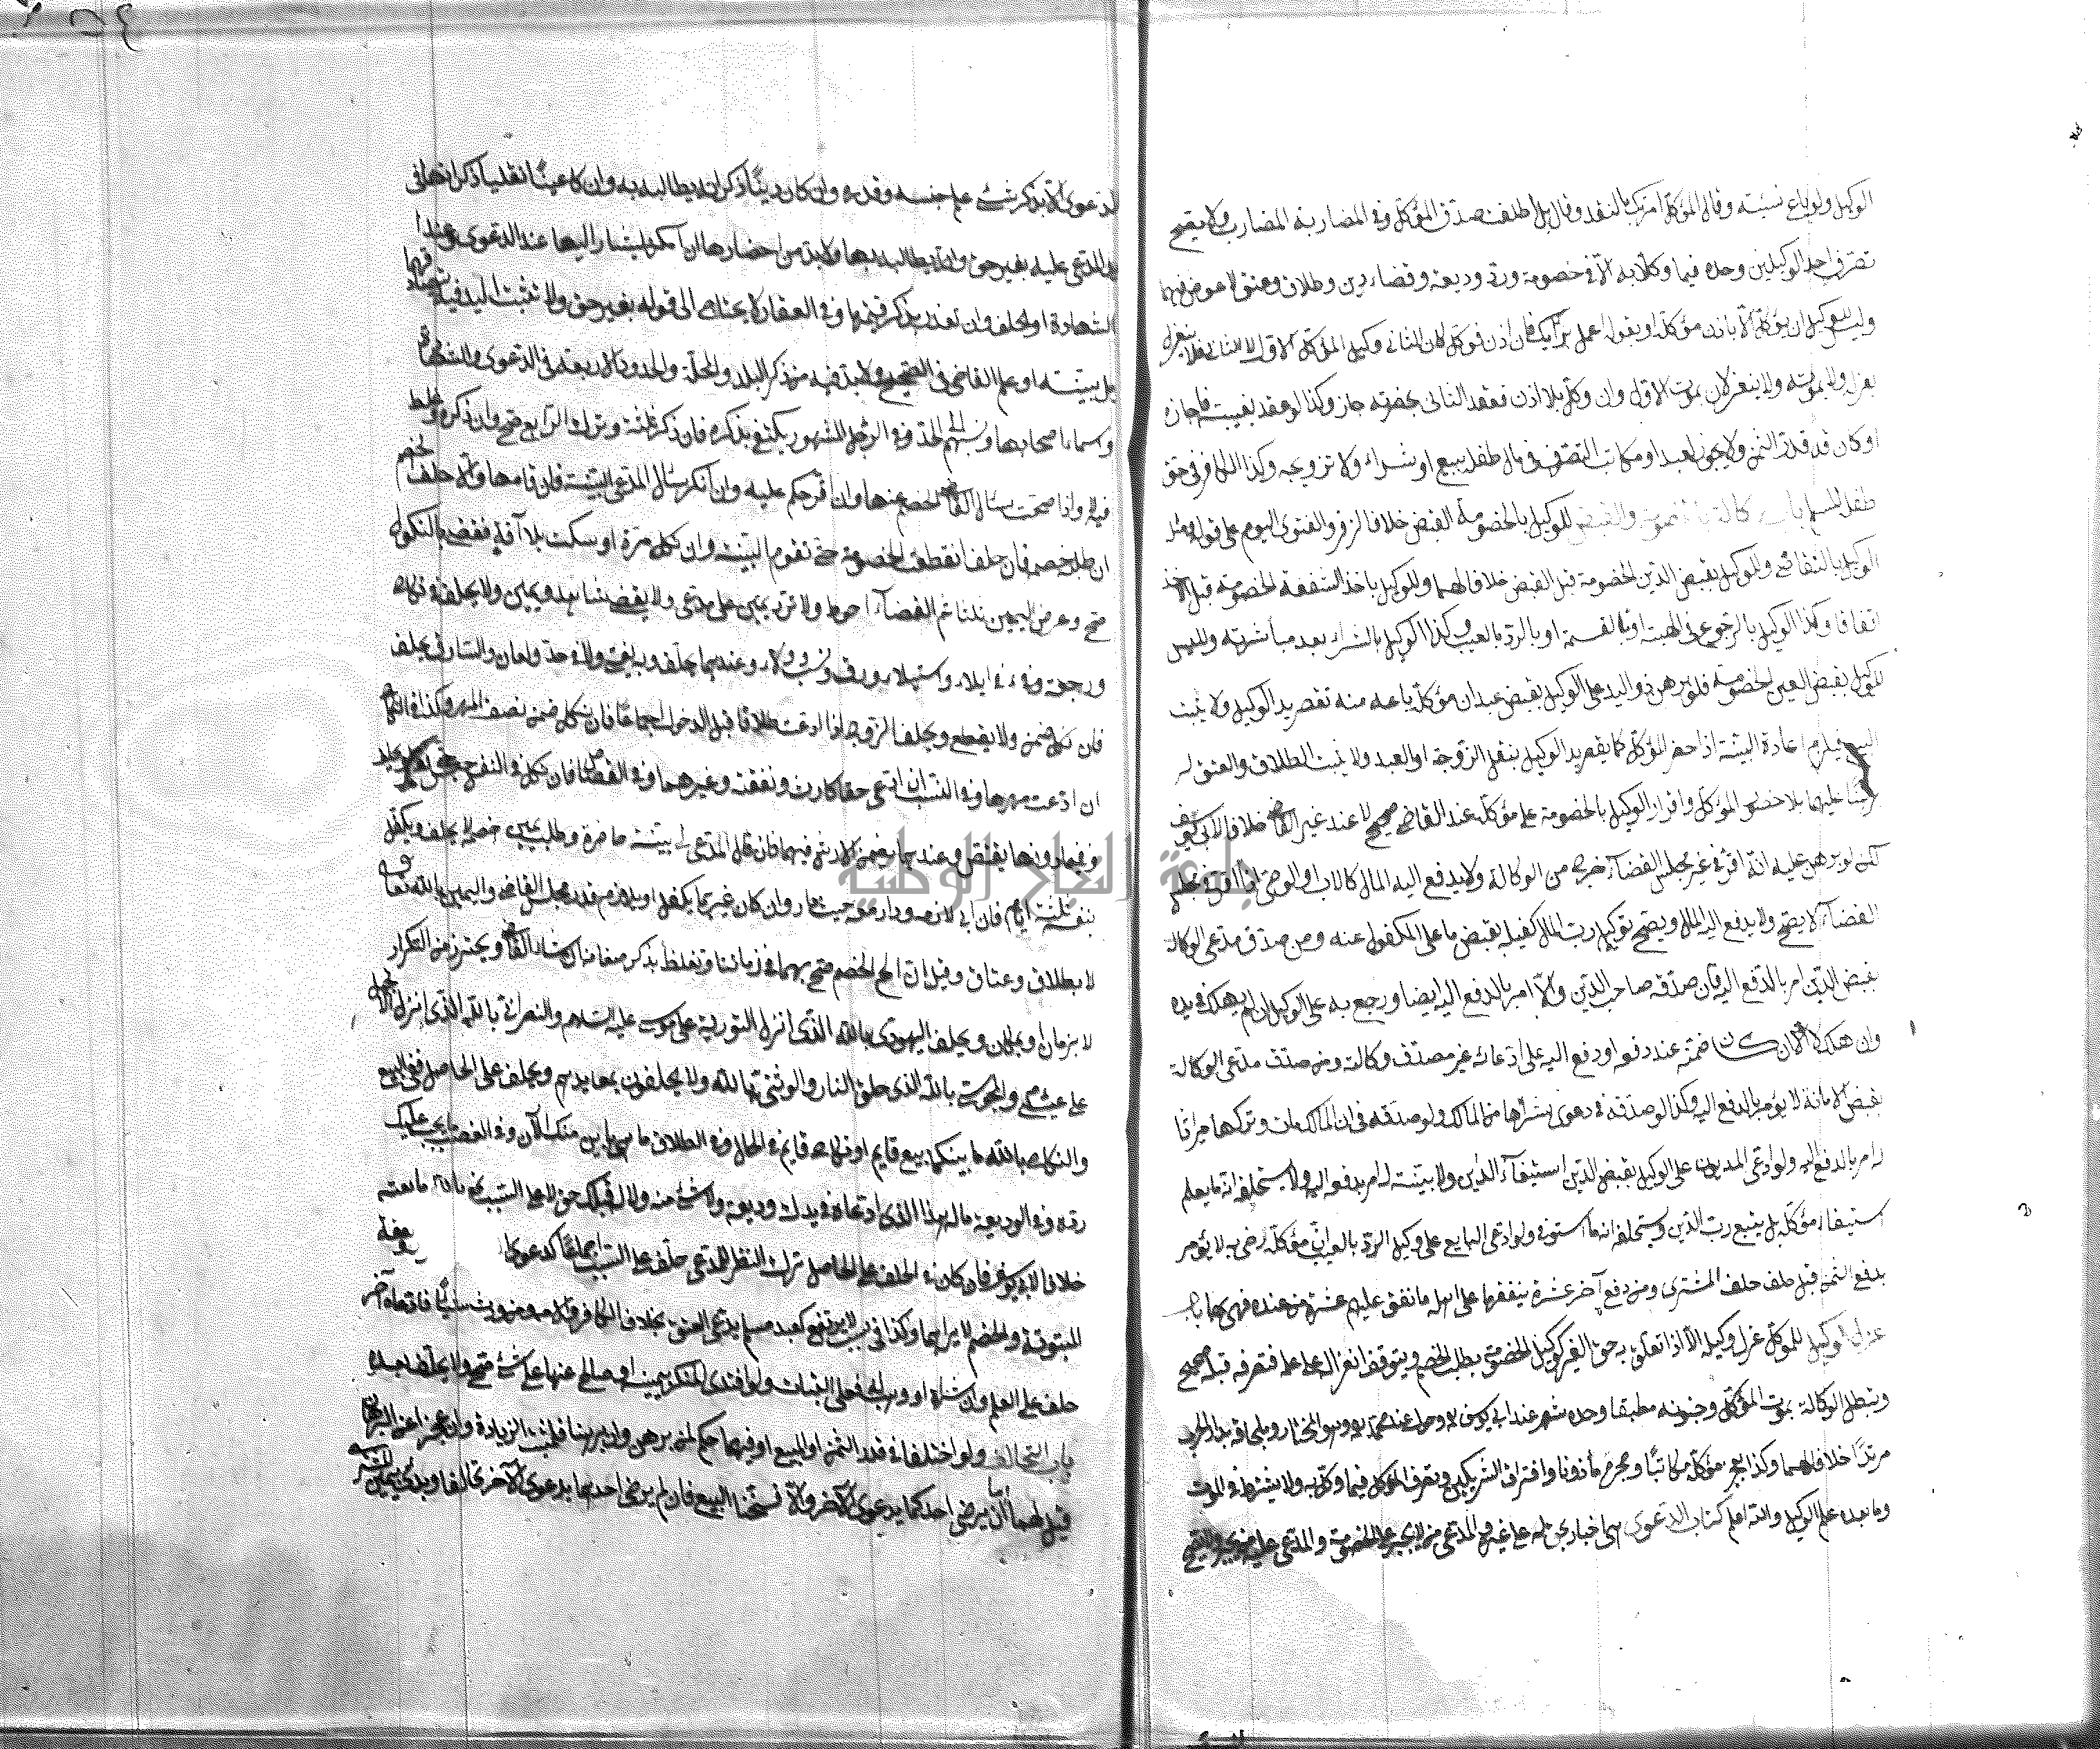 الوكيل ولو باع نسيئة وقال الموكل امرتك بالنقد وقال بل اطلقت صدق الموكل وفي المضاربة المضارب ولا يصح
تصرف احد الوكيلين وحده فيما وكلا به الا في خصومة ورد وديعة وقضاء دين وطلاق وعتق لا عوض فيهما
وليس للوكيل ان يوكل الا باذن موكله او بقوله اعمل برأيك فان اذن فوكل كان الثاني وكيل الموكل الاول لا الثاني فلا ينعزل
بعزله ولا بموته وينعزلان بموت الاول وان وكل بلا اذن فعقد الثاني بحضرته جاز وكذا لو عقد بغيبته فاجازه
او كان قد قدر الثمن ولا يجوز لعبد او مكاتب التصرف في مال طفله ببيع او شراء ولا تزويجه وكذا الكافر في حق
طفله المسلم باب الوكالة بالخصومة والقبض للوكيل بالخصومة القبض خلافا لزفر والفتوى اليوم على قوله ومثله
الوكيل بالتقاضي وللوكيل بقبض الدين الخصومة قبل القبض خلافا لهما وللوكيل باخذ الشفعة الخصومة قبل الاخذ
اتفاقا وكذا الوكيل بالرجوع في الهبة او بالقسمة او بالرد بالعيب وكذا الوكيل بالشراء بعد مباشرته وليس
للوكيل بقبض العين الخصومة فلو برهن ذو اليد على الوكيل بقبض عبد ان موكله باعه منه تقصر يد الوكيل ولا يثبت
البيع فيلزم اعادة البينة اذا حضر الموكل كما يقصر يد الوكيل بنقل الزوجة او العبد ولا يثبت الطلاق والعتق لو
برهنا عليهما بلا حضور الموكل واقرار الوكيل بالخصومة على موكله عند القاضي صحيح لا عند غير القاضي خلافا لابي يوسف
لكن لو برهن عليه انه اقر في غير مجلس القضاء خرج من الوكالة ولا يدفع اليه المال كالاب او الوصي اذا اقر في مجلس
القضاء لا يصح ولا يدفع اليه المال ويصح توكيل رب المال كفيله بقبض ما على المكفول عنه ومن صدق مدعي الوكالة
بقبض الدين امر بالدفع اليه فان صدقه صاحب الدين والا امر بالدفع اليه ايضا ورجع به على الوكيل ان لم يهلك في يده
وان هلك لا الا ان كان ضمنه عند دفعه او دفع اليه على ادعائه غير مصدق وكالته ومن صدق مدعي الوكالة
بقبض الامانة لا يؤمر بالدفع اليه وكذا لو صدقه في دعوى شرائها من المالك ولو صدقه في ان المالك مات وتركها ميراثا
له امر بالدفع اليه ولو ادعى المديون على الوكيل بقبض الدين استيفاء الدائن ولا بينة له امر بدفعه اليه ولا يستحلفه انه ما يعلم
استيفاء موكله بل يتبع رب الدين ويستحلفه انه ما استوفى ولو ادعى البايع على وكيل الرد بالعيب ان موكله رضي به لا يؤمر
بدفع الثمن قبل حلف المشتري ومن دفع اليه آخر عشرة ينفقها على اهله فانفق عليهم عشرة من عنده فهي بها باب
عزل الوكيل للموكل عزل وكيله الا اذا تعلق به حق الغير كوكيل الخصومة بطلب الخصم ويتوقف انعزاله على علمه فتصرفه قبله صحيح
وتبطل الوكالة بموت الموكل وجنونه مطبقا وحده شهر عند ابي يوسف وحول عند محمد وهو المختار وبلحاقه بدار الحرب
مرتدا خلافا لهما وكذا بعجز موكله مكاتبا وحجره مأذونا وافتراق الشريكين وتصرف الموكل فيما وكل به ولا يشترط في الموت
وما بعده علم الوكيل والله اعلم كتاب الدعوى هي اخبار بحق له على غيره والمدعي من لا يجبر على الخصومة والمدعى عليه من يجبر ولا تصح
الدعوى الا بذكر شيء علم جنسه وقدره وان كان دينا ذكر انه يطالبه به وان كان عينا نقليا ذكر انها في
يد المدعى عليه بغير حق وانه يطالبه بها ولا بد من احضارها ان امكن ليشار اليها عند الدعوى وعند
الشهادة او الحلف وان تعذر يذكر قيمتها وفي العقار لا يحتاج الى قوله بغير حق ولا تثبت اليد فيه بتصادقهما
بل ببينة او علم القاضي في الصحيح ولا بد فيه من ذكر البلد والمحلة والحدود الاربعة في الدعوى والشهادة
واسماء اصحابها ونسبهم الى الجد وفي الرجل المشهور يكتفى بذكره فان ذكر ثلثة وترك الرابع صح وان ذكره وغلط
فيه لا واذا صحت سئال القاضي الخصم عنها فان اقر حكم عليه وان انكر سئال المدعي البينة فان اقامها والا حلف الخصم
ان طلبه خصمه فان حلف انقطعت الخصومة حتى تقوم البينة وان نكل مرة او سكت بلا آفة فقضي بالنكول
صح وعرض اليمين ثلثا ثم القضاء احوط ولا ترد يمين على مدعي ولا يقضى بشاهد ويمين ولا يحلف في نكاح
ورجعة وفيء في ايلاء واستيلاد ورق ونسب وولاء وعندهما يحلف وبه يفتى ولا في حد ولعان والسارق يحلف
فان نكل ضمن ولا يقطع ويحلف الزوج اذا ادعت طلاقا قبل الدخول اجماعا فان نكل ضمن نصف المهر وكذا في النكاح
ان ادعت مهرها وفي النسب ان ادعى حقا كارث ونفقة وغيرهما وفي القصاص فان نكل في النفس حبس حتى يقر او يحلف
وفيما دونها يقتص وعندهما يضمن الارش فيهما فان قال المدعي لي بينة حاضرة وطلب يمين خصمه لا يحلف ويكفل
بنفسه ثلثة ايام فان ابى لازمه ودار معه حيث دار وان كان غريبا يكفل او يلازم قدر مجلس القاضي واليمين بالله تعالى
لا بطلاق وعتاق وقيل ان الح الخصم صح بهما في زماننا وتغلظ بذكر صفاته ان شاء القاضي ويحترز من التكرار
لا بزمان او بمكان ويحلف اليهودي بالله الذي انزل التورية على موسى عليه السلام والنصراني بالله الذي انزل الانجيل
على عيسى والمجوسي بالله الذي خلق النار والوثني بالله ولا يحلفون بمعابدهم ويحلف على الحاصل ففي البيع
والنكاح بالله ما بينكما بيع قايم او نكاح قايم في الحال وفي الطلاق ما هي باين منك الآن وفي الغصب ما يجب عليك
رده وفي الوديعة ماله هذا الذي ادعاه في يدك وديعة ولا شيء منه ولا له قبلك حق لا على السبب نحو بالله ما بعته
خلافا لابي يوسف فان كان في الحلف على الحاصل ترك النظر للمدعي حلف على السبب اجماعا كدعوى
المبتوتة والخصم لا يراها وكذا في سبب لا يرتفع كعبد مسلم يدعي العتق بخلاف الكافر والامة ومن ورث شيئا فادعاه آخر
حلف على العلم وان شراه او وهب له فعلى البتات ولو افتدى المنكر يمينه او صالح عنها على شيء صح ولا يحلف بعده
باب التحالف ولو اختلفا في قدر الثمن او المبيع او فيهما حكم لمن برهن وان برهنا فلمثبت الزيادة وان عجزا عن البرهان
قيل لهما اما ان يرضى احدكما بدعوى الآخر والا فسخنا البيع فان لم يرض احدهما بدعوى الآخر تحالفا وبدئ بيمين المشتري